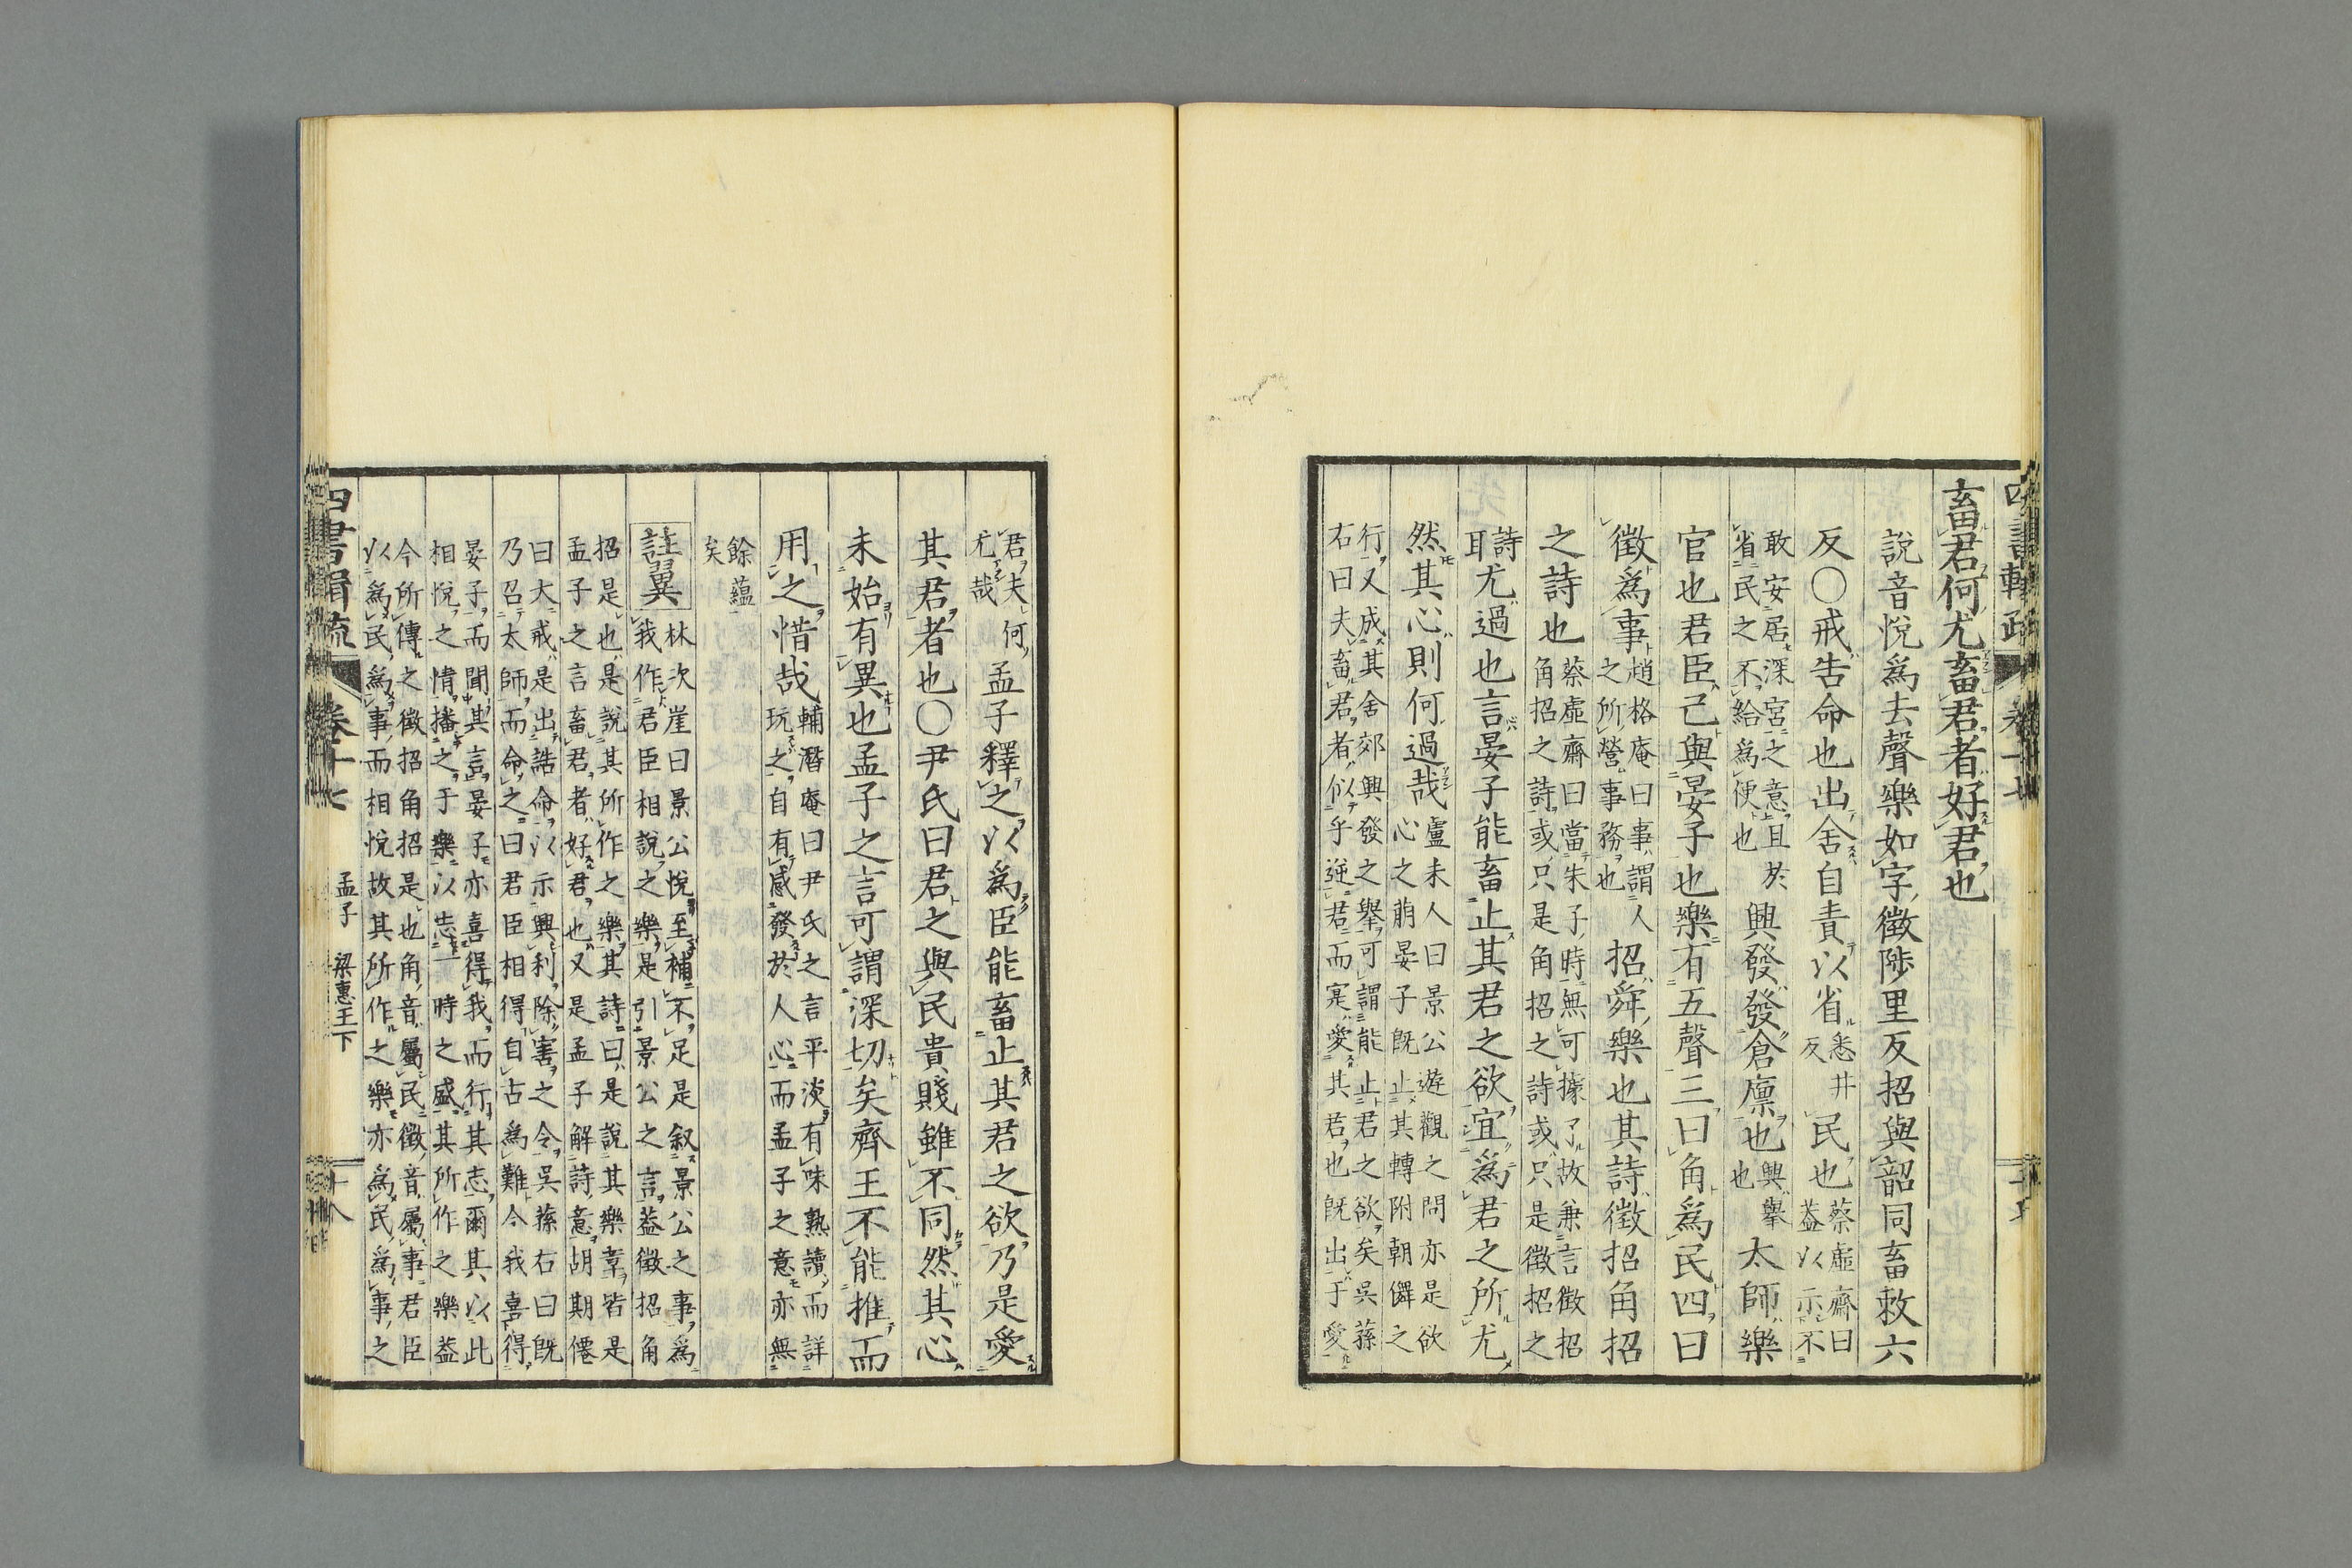 畜君何尤畜君者好君也
說音悅爲去聲樂如字徵陟里反招與韶同畜敕六
反〇戒告命也出舍自責以省
悉井
反
民也
蔡虛齋曰
葢以示不
敢安居深宮之意且於
省民之不給爲便也
興發發倉廩也
興舉
也
太師樂
官也君臣己與晏子也樂有五聲三曰角爲民四曰
徵爲事
趙格庵曰事謂人
之所營事務也
招舜樂也其詩徵招角招
之詩也
蔡虛齋曰當朱子時無可據了故兼言徵招
角招之詩或只是角招之詩或只是徵招之
詩
耳
尤過也言晏子能畜止其君之欲宜爲君之所尤
然其心則何過哉
盧未人曰景公遊觀之問亦是欲
心之萠晏子旣止其轉附朝儛之
行又成其舍郊興發之舉可謂能止君之欲矣吳蓀
右曰夫畜君者似乎逆君而寔愛其君也旣出于愛
君夫何
尤哉
孟子釋之以爲臣能畜止其君之欲乃是愛
其君者也〇尹氏曰君之與民貴賤雖不同然其心
未始有異也孟子之言可謂深切矣齊王不能推而
用之惜哉
輔潛庵曰尹氏之言平淡有味熟讀而詳
玩之自有感發於人心而孟子之意亦無
餘蘊
矣
註翼
林次崖曰景公悅至補不足是叙景公之事爲
我作君臣相說之樂是引景公之言葢徵招角
招是也是說其所作之樂其詩曰是說其樂章皆是
孟子之言畜君者好君也又是孟子解詩意胡期僊
曰大戒是出誥命以示興利除害之令吳蓀右曰旣
乃召太師而命之曰君臣相得自古爲難今我喜得
晏子而聞其言晏子亦喜得我而行其志爾其以此
相悅之情播之于樂以志一時之盛其所作之樂葢
今所傳之徵招角招是也角音屬民徵音屬事君臣
以爲民爲事而相悅故其所作之樂亦爲民爲事之
四書輯疏
卷十七
孟子 梁惠王下
十八